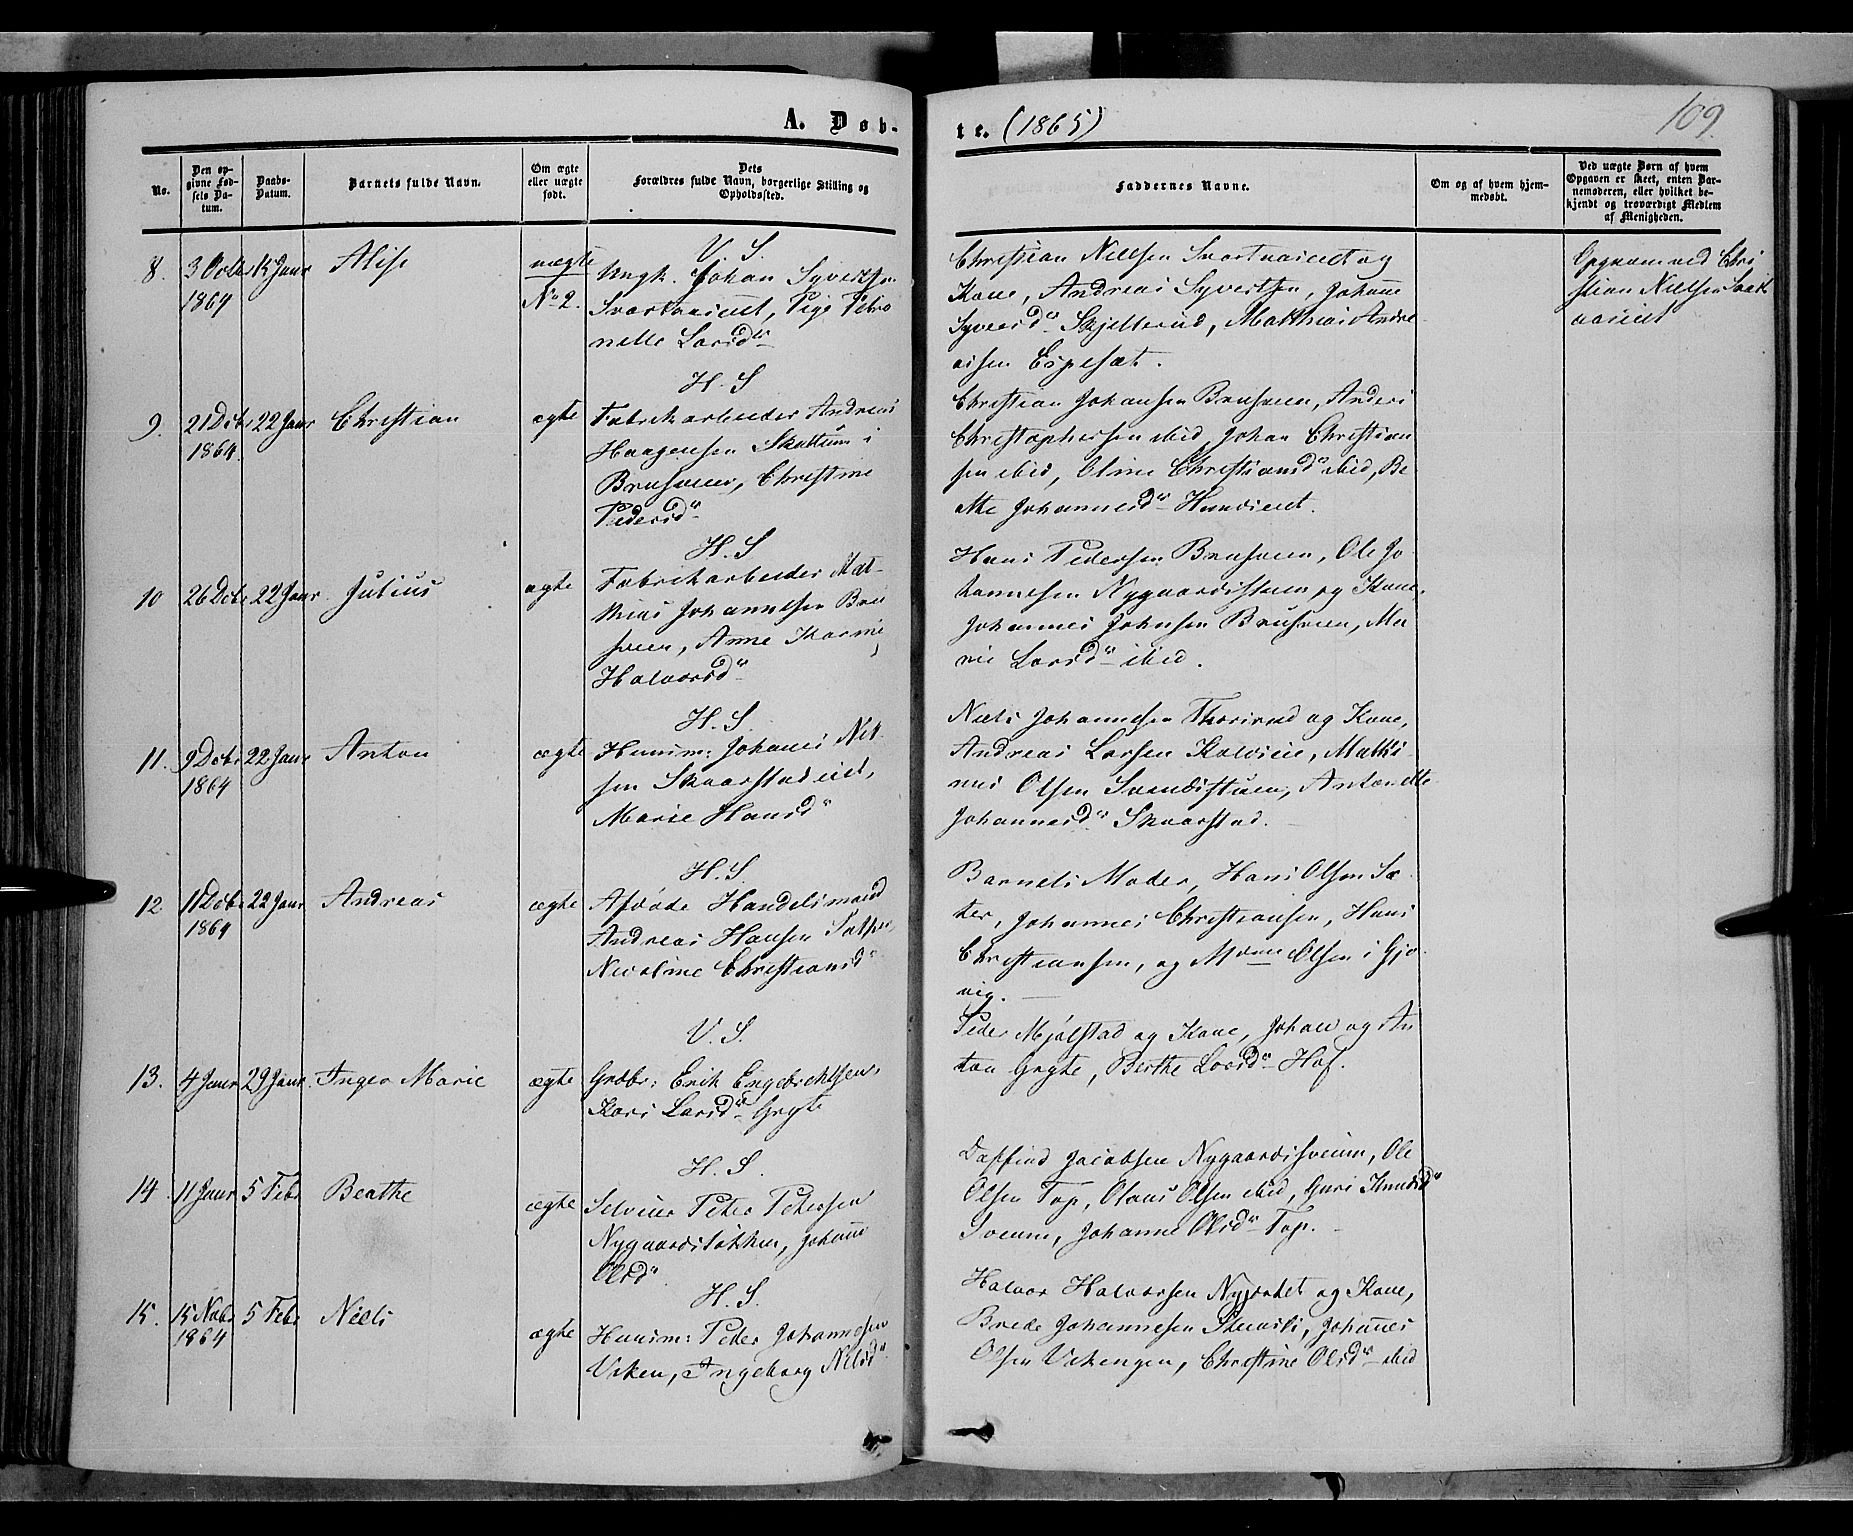 A. Døb-
te. (1865)
109.
No.
Den op-
givne Fød-
sels Da-
tum.
Daabs-
Datum.
Barnets fulde Navn.
Om ægte
eller uægte
født.
Dets
Forældres fulde Navn, borgerlige Stilling og
Opholdssted.
Faddernes Navne.
Om og af hvem hjem-
medøbt.
Ved uægte Børn af hvem
Opgaven er skeet, enten Bar-
nemoderen, eller hvilket be-
kjendt og troværdigt Medlem
af Menigheden.
8. 3 Octbr 15 Janr Alise uægte
1864 No 2.
V. S.
Ungk. Johan Syvertsen
Svartvaieiet, Pige Petro
nelle Larsdr
Christian Nielsen Svartvaieiet og
Kone, Andreas Syvertsen, Johanne
Syversdr Skjelterud, Matthias Andre
asen Espesæt.
Opgave ved Chri
stian Nielsen Svart
vaieiet
9. 21 Decbr 22 Janr Christian ægte
1864.
H. S
Fabrikarbeider Andreas
Haagensen Skattum i
Brusveen, Christine
Pedersdr
Christian Johansen Brusveen, Anders
Christophersen ibid, Johan Christian
sen ibid, Oline Christiansdr ibid, Be
athe Johannesdr Hundseiet.
10 26 Decbr 22 Janr Julius ægte
H. S
Fabrikarbeider Mat-
hias Johannesen Bru
sveen, Anne Karine
Halvorsdr
Hans Pedersen Brusveen, Ole Jo
hannesen Nygaardsstuen og Kone,
Johannes Johnsen Brusveen, Ma
rie Larsdr ibid.
11. 9 Decbr 22 Janr Anton ægte
1864
H. S.
Huusm: Johanes Niel
sen Skaarstadeiet,
Marie Hansdr
Niels Johannesen Thorsrud og Kone,
Andreas Larsen Kalvseie, Mathi
nus Olsen Svendsstuen, Antonette
Johannesdr Skaarstad.
12 11 Decbr 22 Janr Andreas ægte
1864
H. S
Afdøde Handelsmand
Andreas Hansen Sæther,
Nicoline Christiansdr
Barnets Moder, Hans Olsen Sæ-
ter, Johannes Christiansen, Hans
Christiansen, og Mdme Olsen i Gjø
vig.
13. 4 Janr 29 Janr Inger Marie ægte
V. S.
Grdbr: Erik Engebrethsen,
Kari Larsdr Gryte
Peder Mjølstad og Kone, Johan og An
ton Gryte, Berthe Larsdr Hof.
14 11 Janr 5 Febr Beathe ægte
H. S.
Selveier Peter Petersen
Nygaardsløkken, Johanne
Olsdr
Dagfind Jacobsen Nygaardssveum, Ole
Olsen Top, Olaus Olsen ibid, Guri Knudsdr
Sveum, Johanne Olsdr Top.
15. 15 Novbr 5 Febr Niels ægte
1864
H. S.
Huusm: Peder Johannesen
Viken, Ingeborg Nilsdr
Halvor Halvorsen Nyjordet og Kone,
Brede Johannesen Steensli, Johannes
Olsen Vikengen, Christine Olsdr ibid